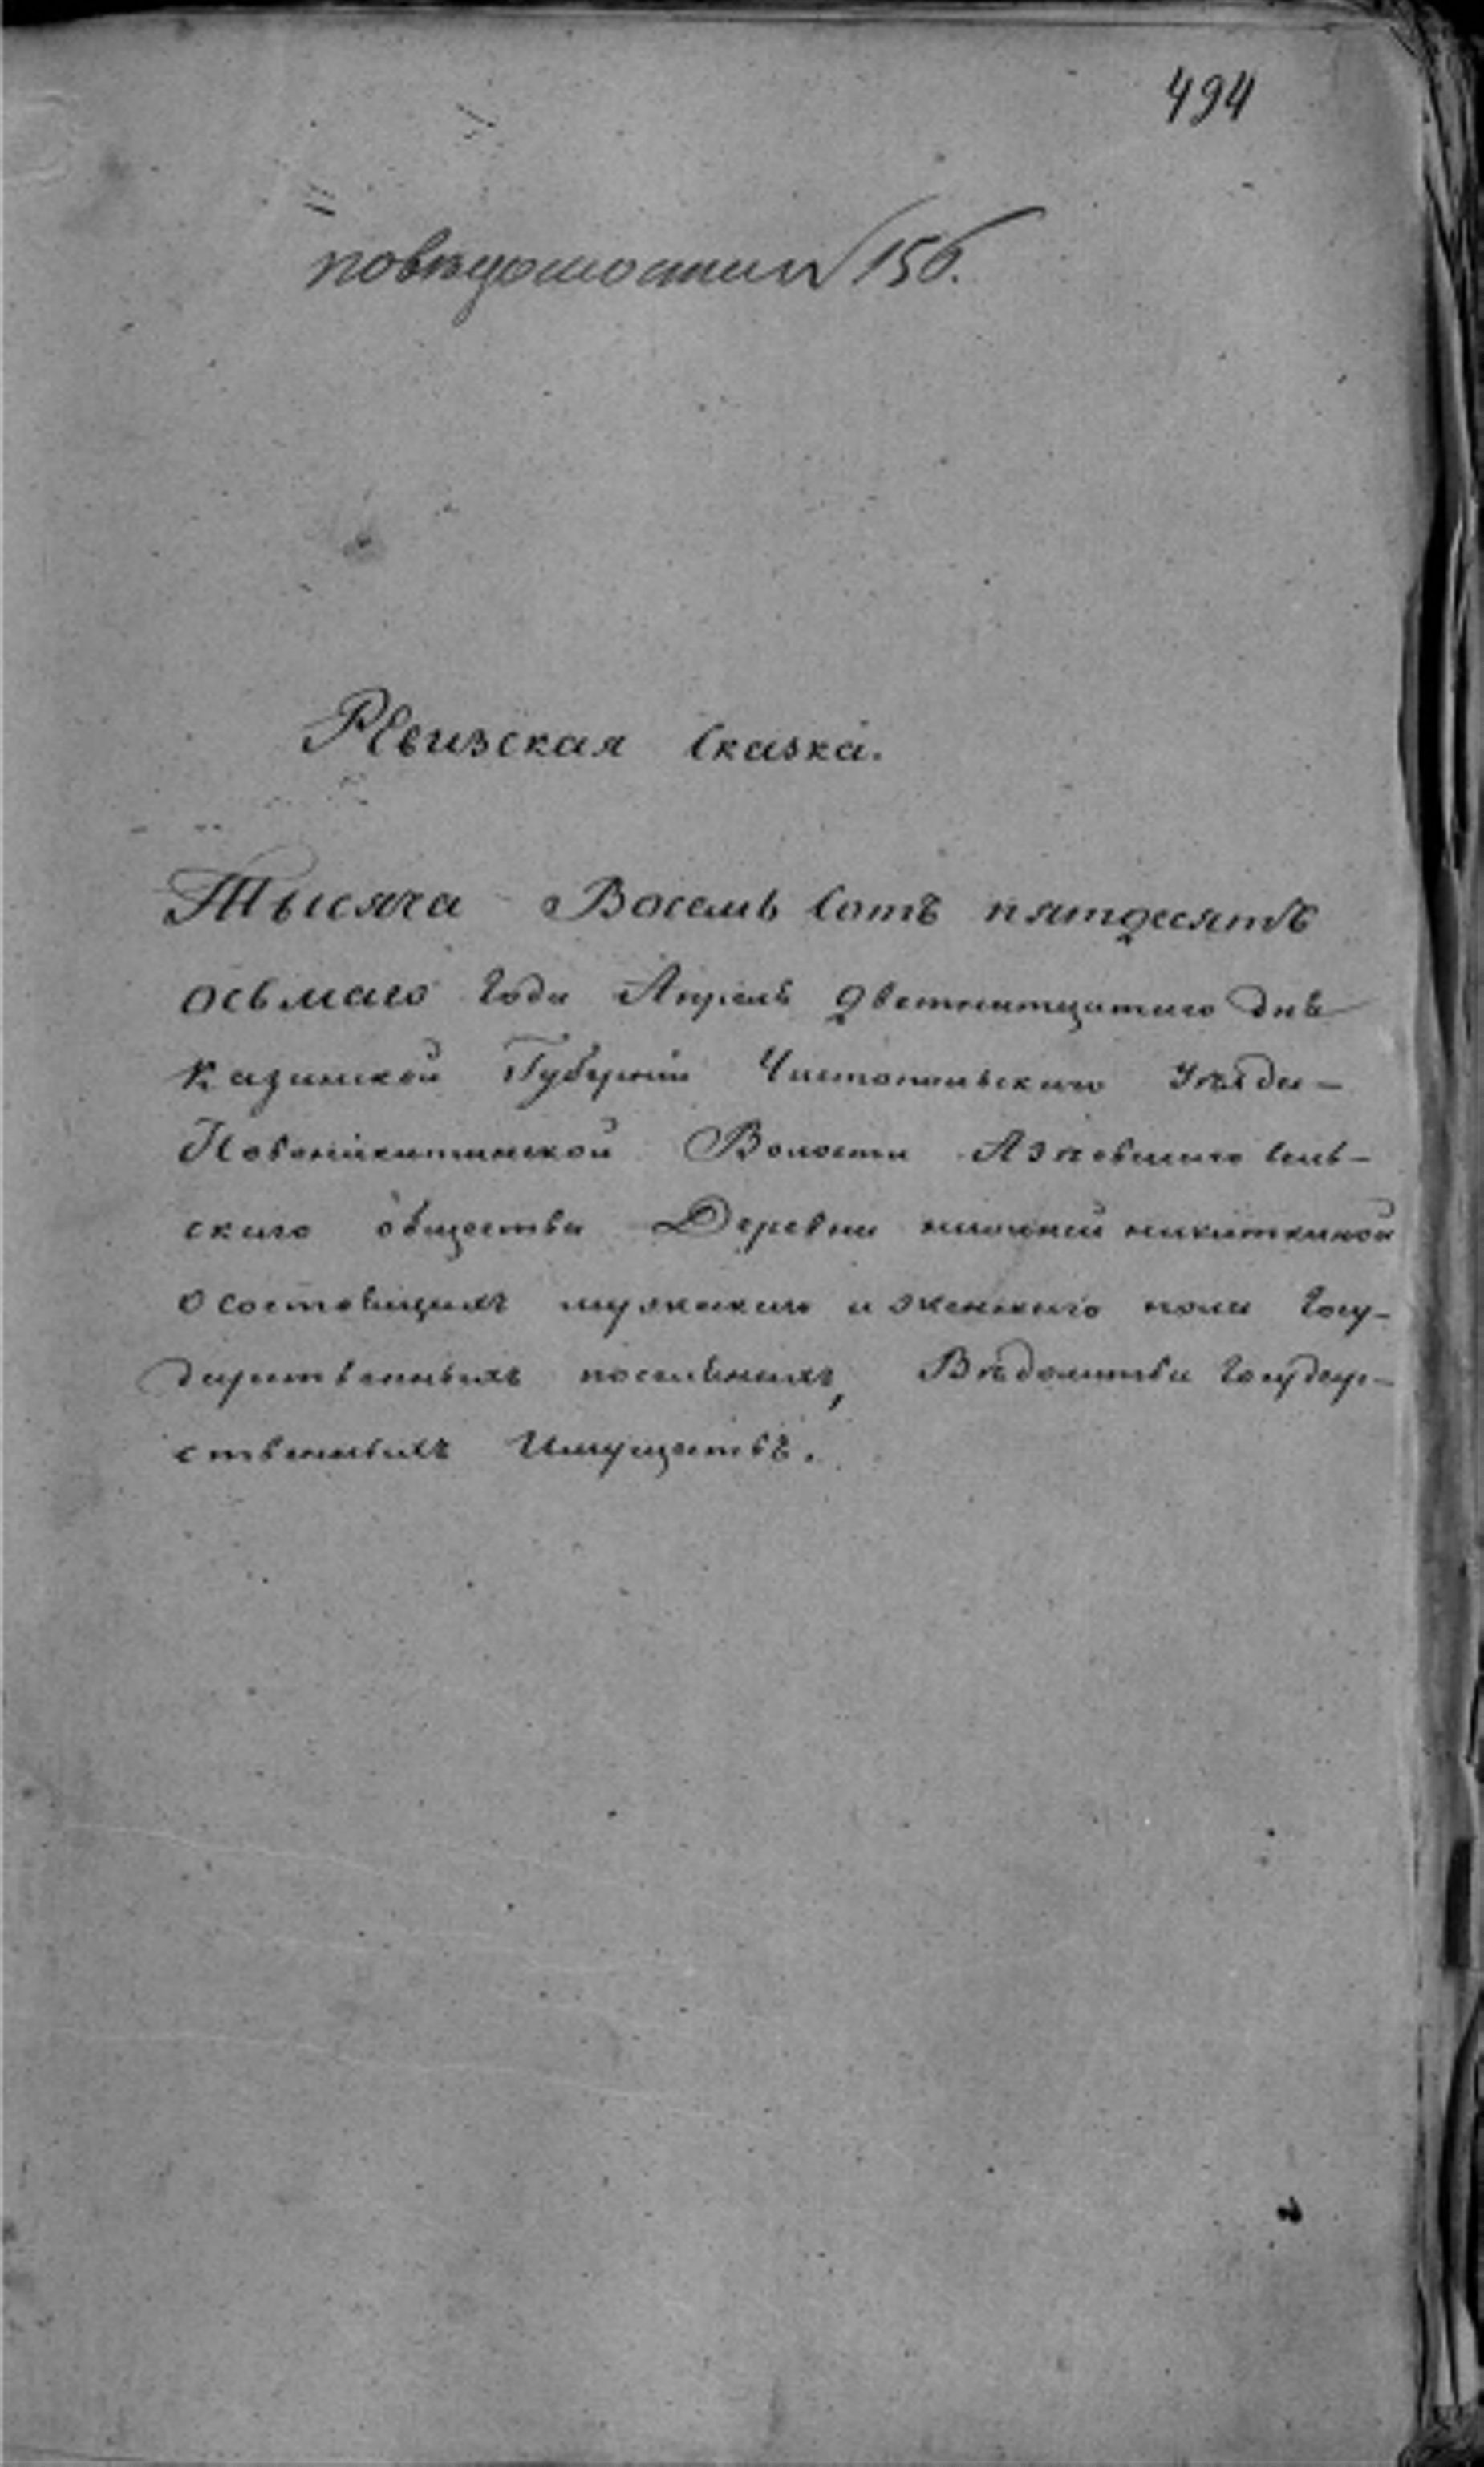 494
повѣдомости № 156.
Ревизская Сказка.
Тысяча Восемь Сотъ пятдесятъ
осьмаго Года Апрѣль дня
Казанской Губерніи Чистопольскаго Уѣзда
Новоникитинской Волости сель-
скаго общества Деревни нижней никиткиной
о состоящихъ мужскаго и женскаго пола Госу-
дарственныхъ поселянахъ, Вѣдомства Государ-
ственныхъ Имуществъ.